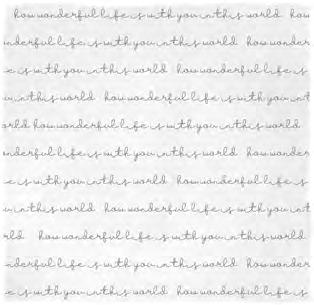 how wonderful life is with you in this world how
onderful life is with you in this world how wonder
e is with you in this world how wonderful life is
u in this world how wonderful life is with you in t
orld how wonderful life is with you in this world
onderful life is with you in this world how wonder
e is with you in this world how wonderful life is
u in this world how wonderful life is with you in t
rld how wonderful life is with you in this world
onderful life is with you in this world how wonder
e is with you in this world how wonderful life is